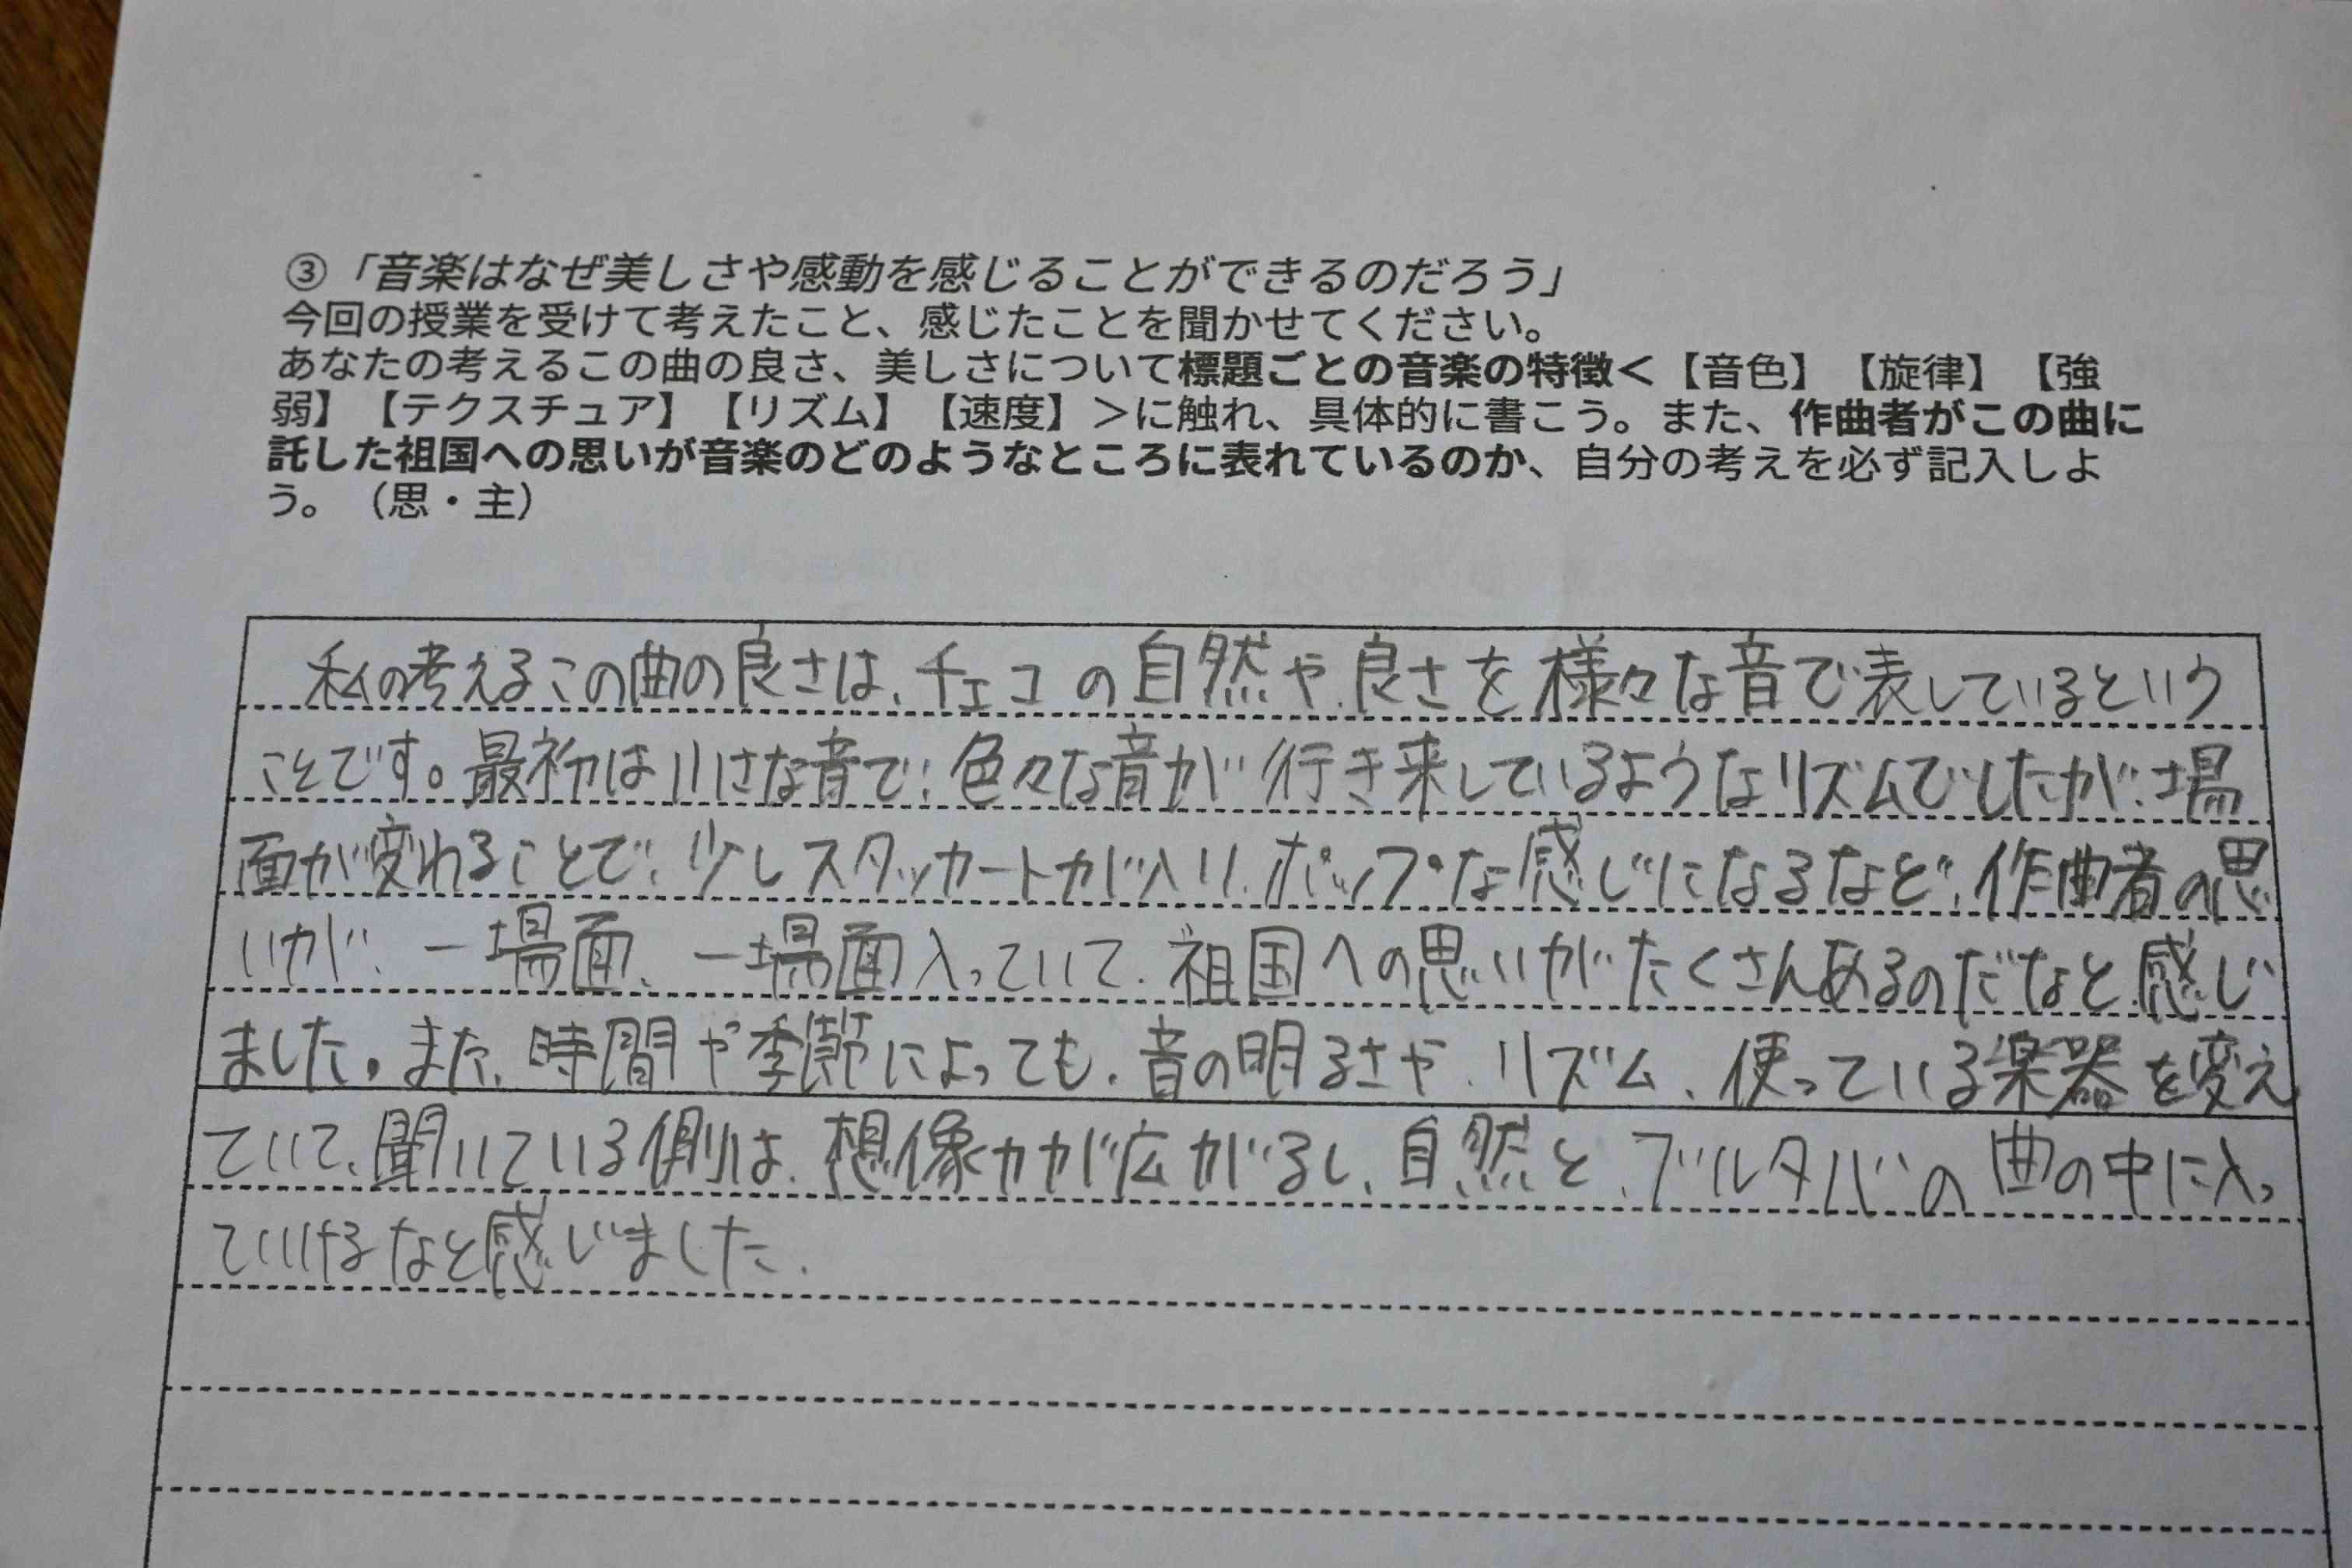 ③「音楽はなぜ美しさや感動を感じることができるのだろう」
今回の授業を受けて考えたこと、感じたことを聞かせてください。
あなたの考えるこの曲の良さ、美しさについて標題ごとの音楽の特徴＜【音色】【旋律】【強
弱】【テクスチュア】【リズム】【速度】＞に触れ、具体的に書こう。また、作曲者がこの曲に
託した祖国への思いが音楽のどのようなところに表れているのか、自分の考えを必ず記入しよ
う。（思・主）
私の考えるこの曲の良さは、チェコの自然や良さを様々な音で表しているという
ことです。最初は小さな音で、色々な音が行き来しているようなリズムでしたが、場
面が変わることで、少しスタッカートが入り、ポップな感じになるなど、作曲者の思
いが、一場面、一場面入っていて、祖国への思いがたくさんあるのだなと感じ
ました。また、時間や季節によっても、音の明るさや、リズム、使っている楽器を変え
ていて、聞いている側は、想像力が広がるし、自然と、ブルタバの曲の中に入っ
ていけるなと感じました。